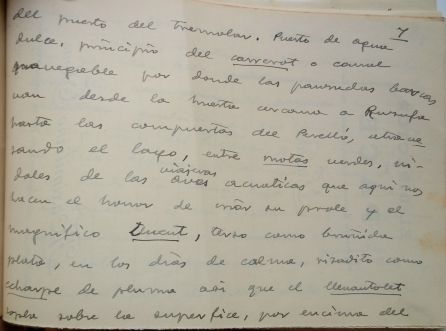 7
del puerto del Tremolar. Puerto de agua
dulce, principio del carrerot o canal
navegable por donde las panzudas barcas
van desde la huerta cercana a Ruzafa
hasta las compuertas del Perelló, atrave
sando el lago, entre motas verdes, ni-
dales de las viajeras aves acuaticas que aqui nos
hacen el honor de criar su prole y el
magnifico Lluent, terso como bruñida
plata, en los dias de calma, rizadito como
echarpe de pluma asi que el llevantolet
sopla sobre la superfice, por encima del